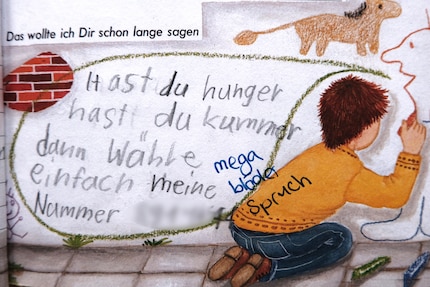 Das wollte ich Dir schon lange sagen
Hast du hunger
hast du kummer
dann Wähle
einfach meine
Nummer
mega
blöder
spruch